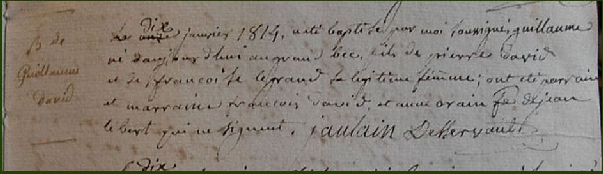 B. de
Guillaume
david
dix
Le onze janvier 1814, a été baptisé par moi soussigné, guillaume
né d'aujourd'hui au grand bec, fils de pierre david
et de francoise legrand sa legitime femme; ont été parrain
et marraine francois david, et anne drain fe de jean
libert qui ne signent. jaulain Desservant
dix